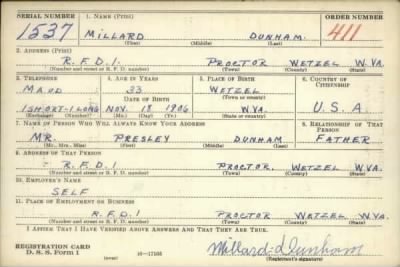 SERIAL NUMBER 1. NAME (Print) ORDER NUMBER
1537 MILLARD DUNHAM. 411
(First) (Middle) (Last)
2. ADDRESS (Print)
R.F.D.1 PROCTOR WETZEL W.VA.
(Number and street or R. F. D. number) (Town) (County) (State)
3. TELEPHONE 4. AGE IN YEARS 5. PLACE OF BIRTH 6. COUNTRY OF CITIZENSHIP
MAUD 33 WETZEL
DATE OF BIRTH (Town or county)
1SHORT-1LONG NOV. 18 1906 W.VA. U.S.A
(Exchange) (Number) (Mo.) (Day) (Yr.) (State or country)
7. NAME OF PERSON WHO WILL ALWAYS KNOW YOUR ADDRESS 8. RELATIONSHIP OF THAT PERSON
MR. PRESLEY DUNHAM FATHER
(Mr., Mrs., Miss) (First) (Middle) (Last)
9. ADDRESS OF THAT PERSON
R.F.D.1 PROCTOR. WETZEL W.VA.
(Number and street or R. F. D. number) (Town) (County) (State)
10. EMPLOYER'S NAME
SELF
11. PLACE OF EMPLOYMENT OR BUSINESS
R.F.D.1 PROCTOR WETZEL W.VA.
(Number and street or R. F. D. number) (Town) (County) (State)
I AFFIRM THAT I HAVE VERIFIED ABOVE ANSWERS AND THAT THEY ARE TRUE.
REGISTRATION CARD
D. S. S. Form 1 (over) 16-17105 Millard Dunham
(Registrant's signature)